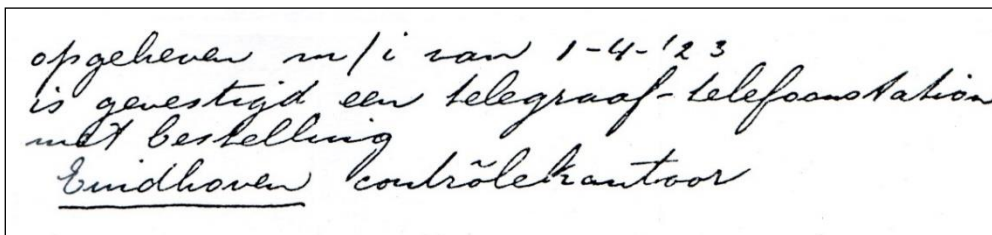 opgeheven m/i van 1-4-'23
is gevestigd een telegraaf-telefoonstation
met bestelling
Eindhoven contrôlekantoor